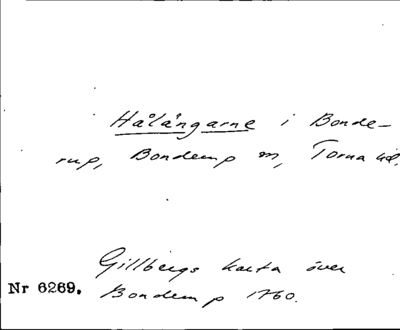 Hålängarne i Bonde-
rup, Bonderup m, Torna hd.
Gillbergs karta över
Nr 6269. Bonderup 1760.